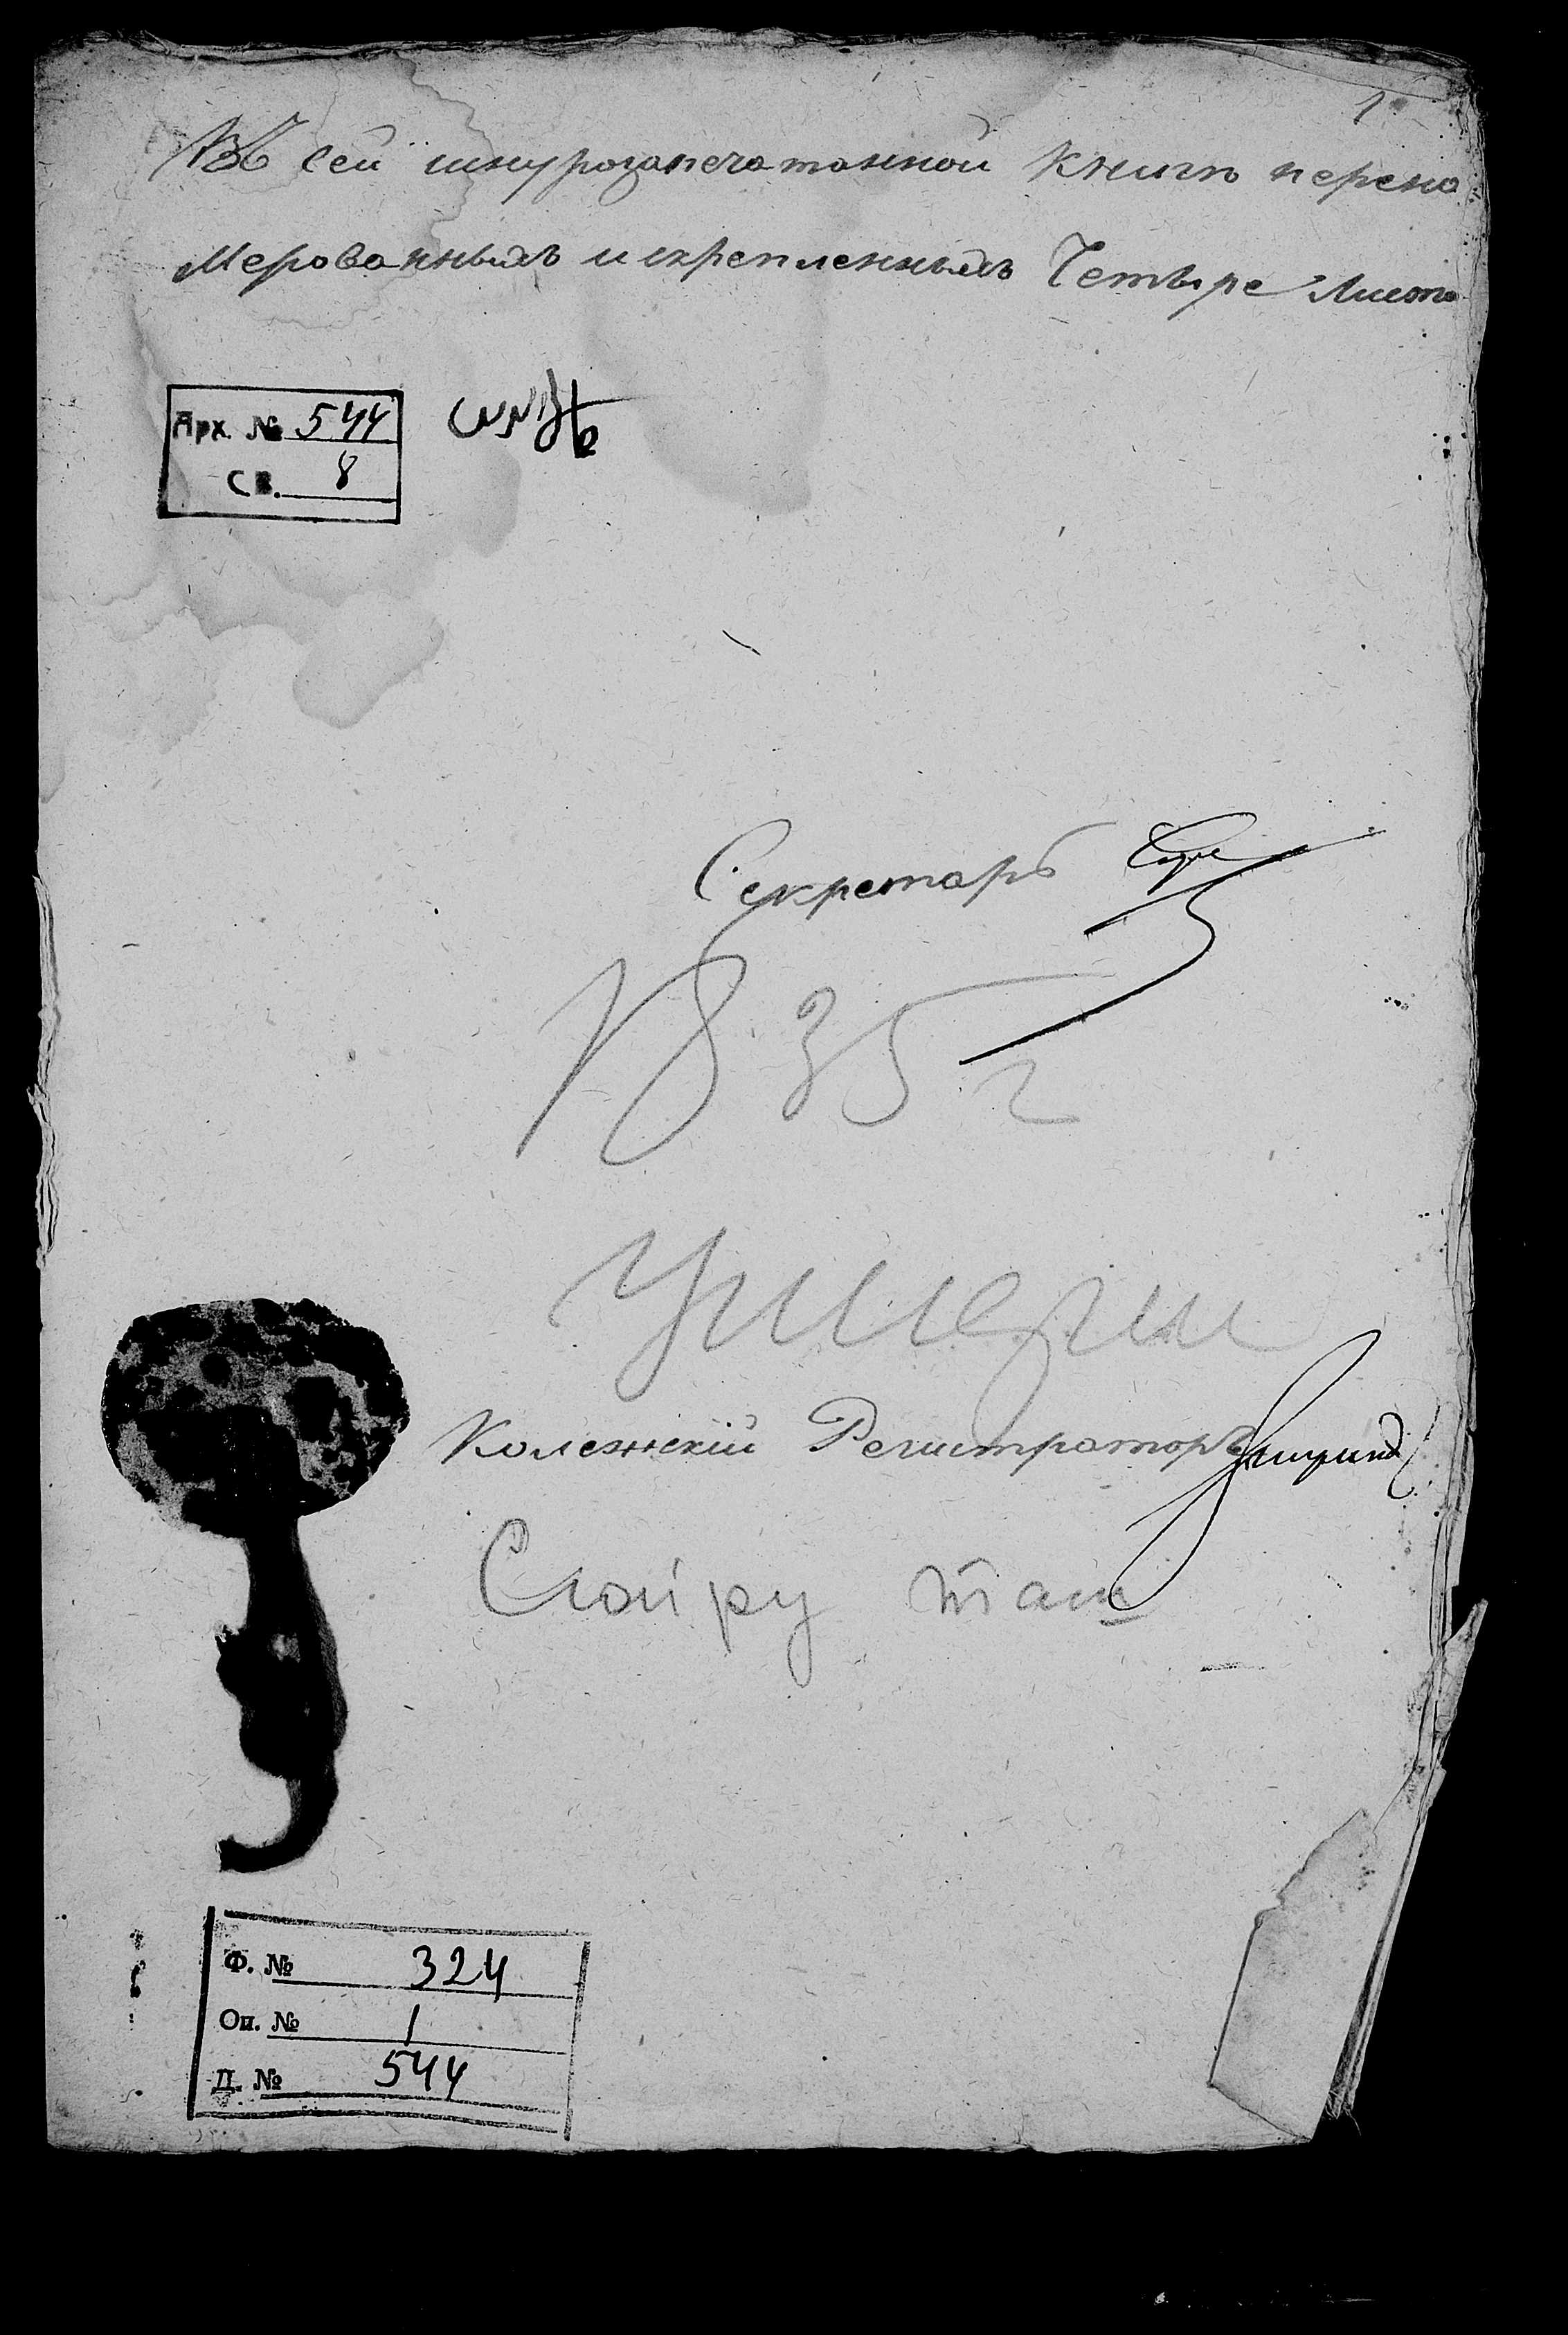 1
Въ сей шнурозапечатанной книги перено
мерованныхъ и скрепленныхъ Четыре Листа
Арх. № 544
СВ. 8
Секретарь
1835 г
Коллежскій Регистраторъ
Ф. № 324
Оп. № 1
Д. № 544